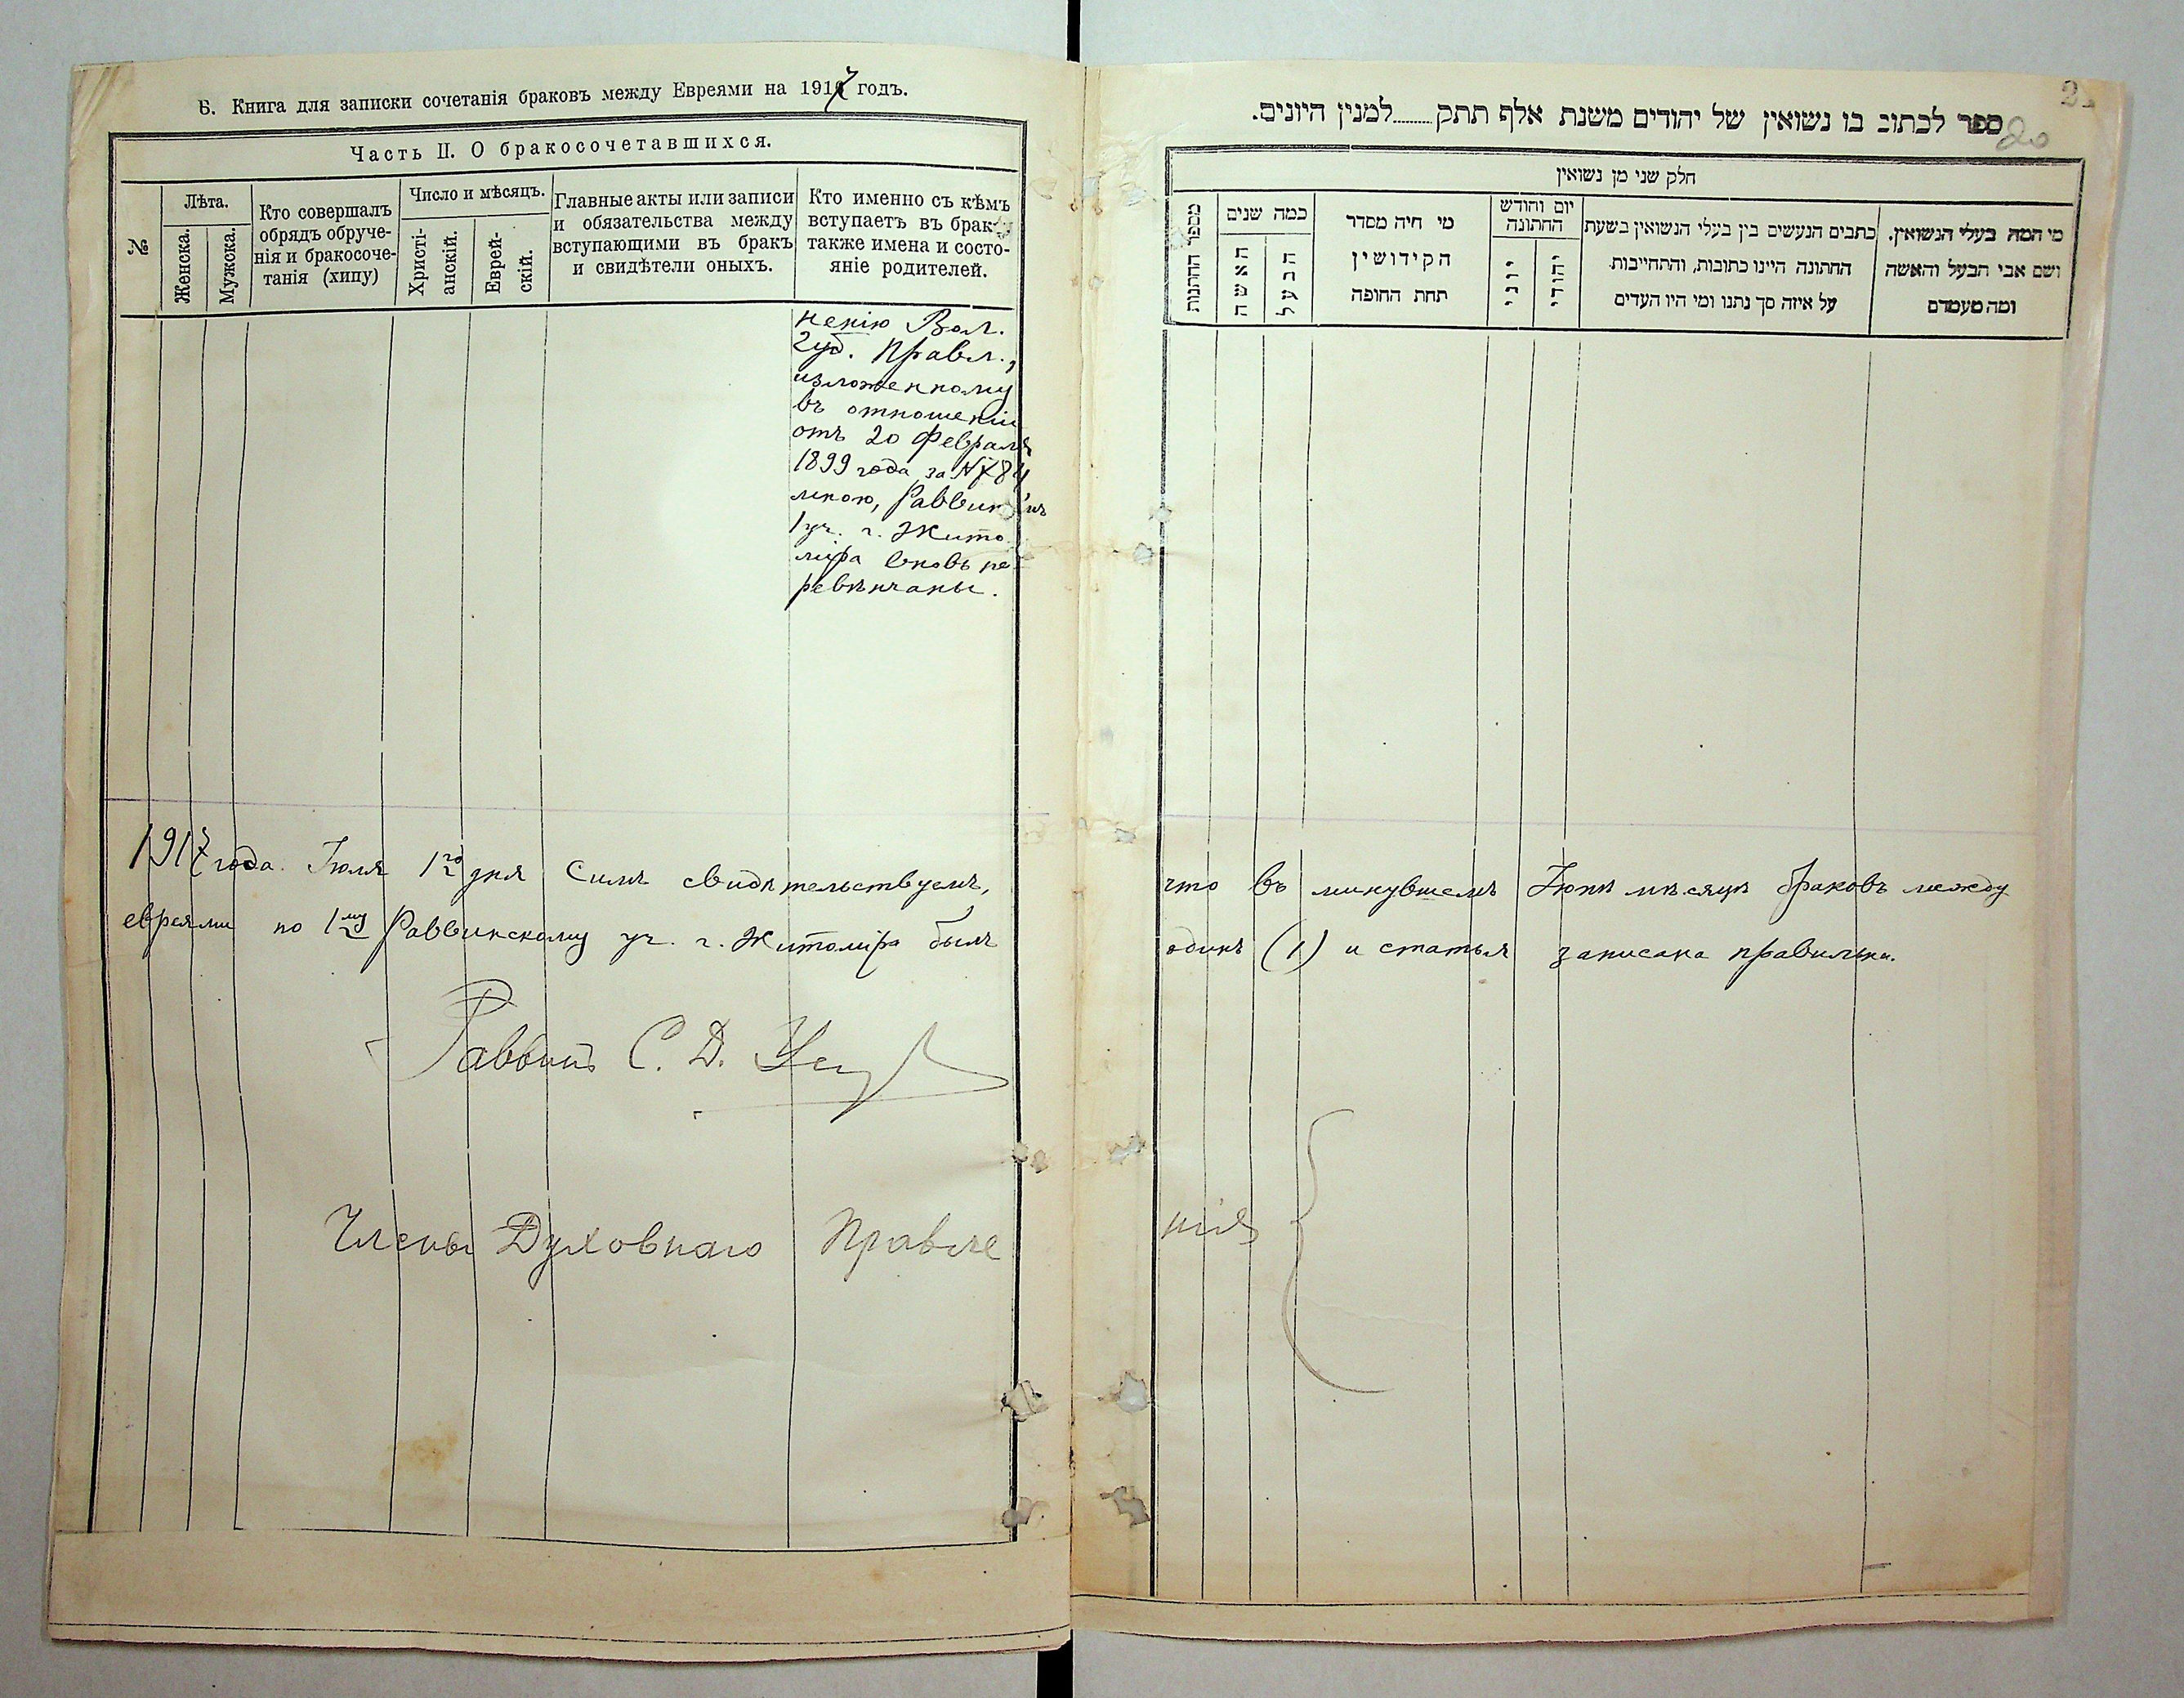 Б. Книга для записки сочетанія браковъ между Евреями на 1917 годъ.
Часть II. О бракосочетавшихся.
№
Лѣта.
Женска.
Мужска.
Кто совершалъ
обрядъ обруче-
нія и бракосоче-
танія (хипу)
Число и мѣсяцъ.
Христі-
анскій.
Еврей-
скій.
Главные акты или записи
и обязательства между
вступающими въ бракъ
и свидѣтели оныхъ.
Кто именно съ кѣмъ
вступаетъ въ бракъ
также имена и состо-
яніе родителей.
ненію Вол.
Губ. Правл.,
изложенному
въ отношеніи
отъ 20 Февраля
1899 года за №
мною, Раввиномъ
1 уч. г. Жито
міра вновь пе
ревѣнчаны.
1917 года Іюля 1го дня Симъ свидѣтельствуемъ,
евреями по 1му Раввинскому уч. г. Житоміра былъ
Раввинъ С. Д.
Члены Духовнаго Правле
20
ספר לכתוב בו נשואין של יהודים משנת אלף תתק........למנין היונים.
חלק שני מן נשואין
מספר החתנות
כמה שנים
האשה
הבעל
מי חיה מסדר
הקידושין
תחת החופה
יום וחודש
החתונה
יוני
יהודי
כתבים הנעשים בין בעלי הנשואין בשעת
החתונה היינו כתובות, והתחייבות
על איזה סך נתנו ומי היו העדים
מי המה בעלי הנשואין.
ושם אבי הבעל והאשה
ומה מעמדם
что въ минувшемъ Іюнѣ мѣсяцѣ браковъ между
одинъ (1) и статья записана правильна.
нія